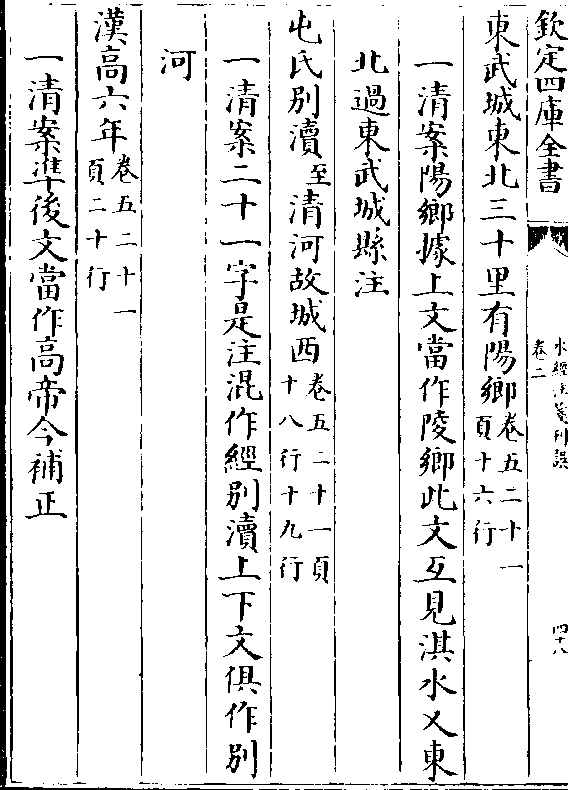 欽定四庫全書
水經注箋刊誤
卷二
四十八
東武城東北三十里有陽鄉卷五二十一頁十六行
一清案陽鄉據上文當作陵鄉此文互見淇水又東
北過東武城縣注
屯氏别瀆至清河故城西卷五二十一頁十八行十九行
一清案二十一字是注混作經别瀆上下文俱作别
河
漢高六年卷五二十一頁二十行
一清案準後文當作高帝今補正